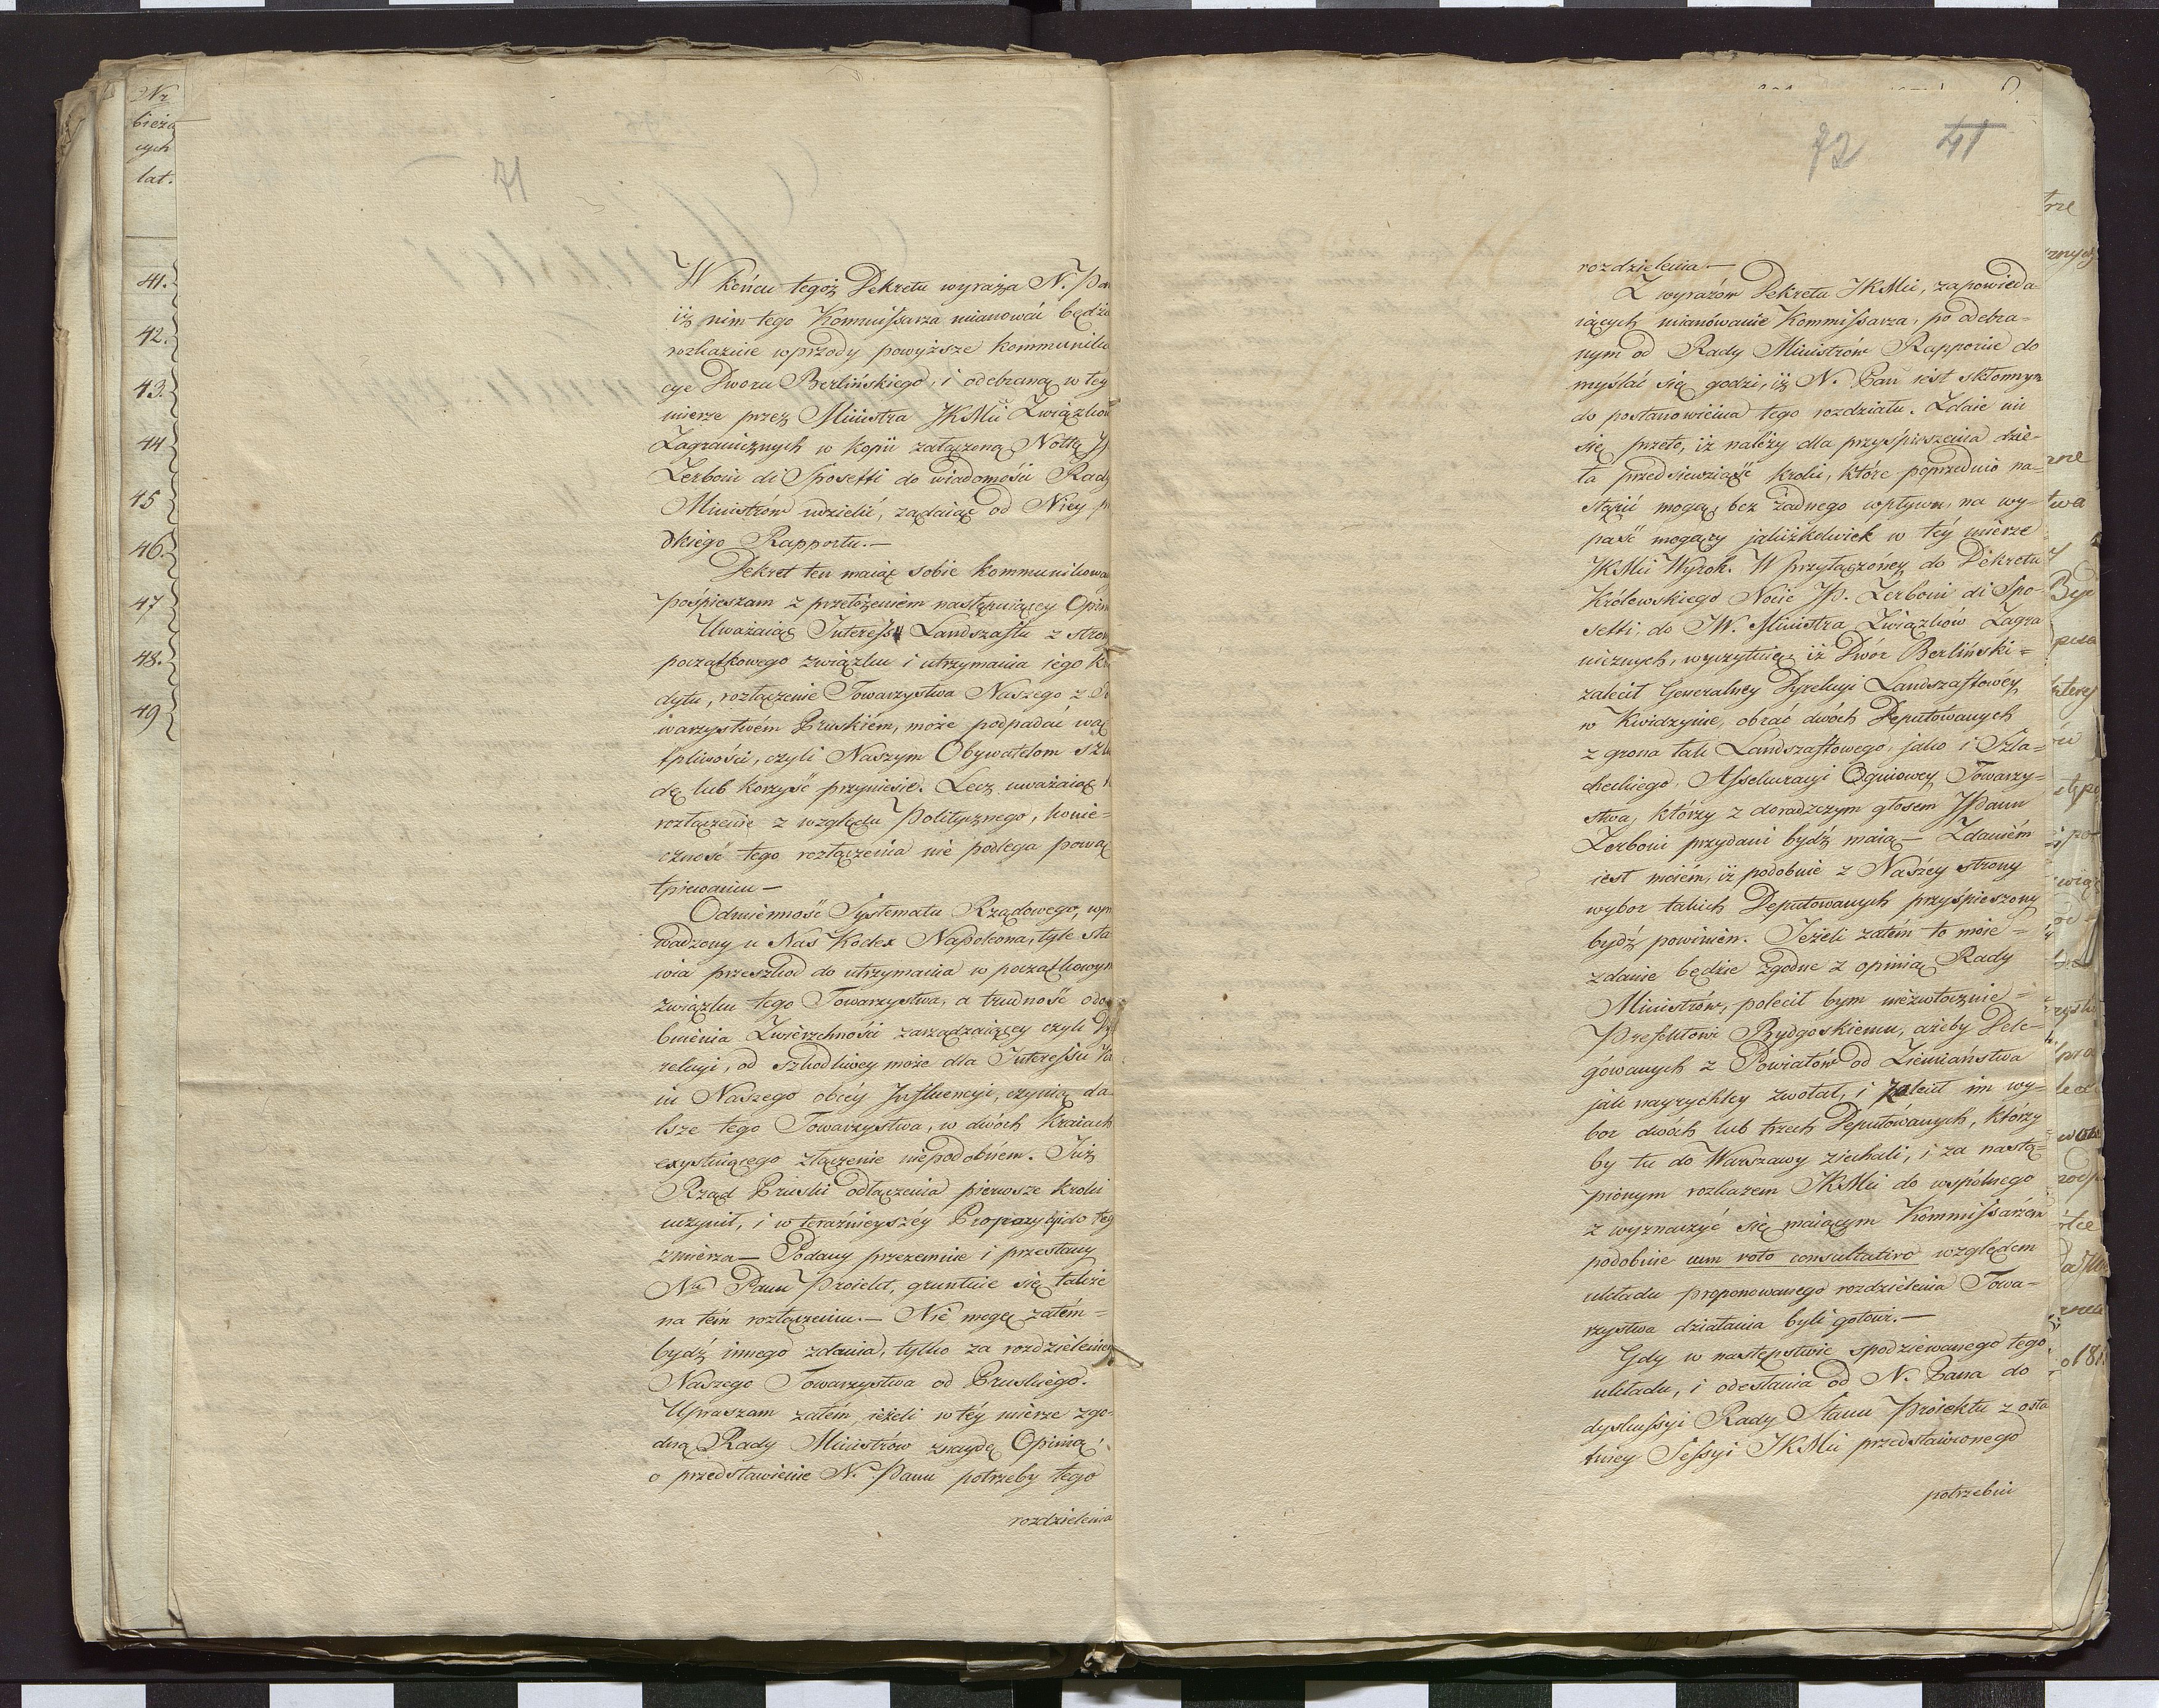 Nr
bieżą
cych
lat.
41.
42.
43.
44
45
46.
47
48.
49
71
W końcu tegoż Dekretu wyraża N. Pan
iż nim tego Kommissarza mianować będzie
rozkazuie wprzódy powyższe kommunika
cye Dworu Berlińskiego, i odebraną w tey
mierze przez Ministra JKMci Związków
Zagranicznych w kopii załączoną Nottę JP
Zerboni di Sposetti do wiadomości Rady
Ministrów udzielić, żądaiąc od Niey
dkiego Rapportu.—
Dekret ten maiąc sobie kommunikowa
pośpieszam z przełożeniem następuiącey Opin
Uważaiąc Interessu Landszaftu z stron
początkowego związku i utrzymania iego k
dytu, rozłączenie Towarzystwa Naszego z To
warzystwém Pruskiém, może podpadać wąt
tpliwości, czyli Naszym Obywatelom szko
dę lub korzyść przyniesie. Lecz uważaiąc
rozłączenie z względu Politycznego, konie=
czność tego rozłączenia nie podlega powąt
tpiewaniu—
Odmienność Systematu Rządowego, wpr
wadzony u Nas Kodex Napoleona, tyle sta
wia przeszkod do utrzymania w początkowym
związku tego Towarzystwa, a trudność odo
bnienia Zwierzchności zarządzaiącey czyli Dy
rekcyi, od szkodliwey może dla Interessu Kra
iu Naszego obcéy Influencyi, czynią da
lsze tego Towarzystwa, w dwóch Kraiach
exystuiącego złączenie niepodobném. Już
Rząd Pruski odłączenia pierwsze kroki
uczynił, i w teraźnieyszéy Propozycyi do tey
zmierza— Podany przezemnie i przesłany
Nu Panu Proiekt, gruntuie się także
na tém rozłączeniu.— Nie mogę zatém=
bydź innego zdania, tylko za rozdzieleniem
Naszego Towarzystwa od Pruskiego.
Upraszam zatém, ieżeli w téy mierze zgo-
dną Rady Ministrów znaydę Opinią,
o przedstawienie N. Panu potrzeby tego
rozdzielenia
72 41
rozdzielenia—
Z wyrazów Dekretu JKMci, zapowieda
iących mianowanie Kommissarza, po odebra=
nym od Rady Ministrów Rapporcie do
myślać się godzi, iż N. Pan iest skłonnym
do postanowienia tego rozdziału. Zdaie mi
się przeto, iż należy dla przyśpieszenia dzie=
ła przedsiewziąść kroki, które poprzednio na=
stąpić mogą, bez żadnego wpływu, na wy=
paść mogący jakiżkolwiek w téy mierze
JKMci Wyrok. W przyłączoney do Dekretu
Królewskiego Nocie JP. Zerboni di Spo=
setti, do JW. Ministra Związków Zagra
nicznych, wyczytuię, iż Dwór Berliński=
zalecił Generalney Dyrekcyi Landszaftowéy
w Kwidzynie, obrać dwóch Deputowanych
z grona tak Landszaftowego, jako i Szla=
checkiego Assekuracyi Ogniowey Towarzy=
stwa, którzy z doradzczym głosem JPanu
Zerboni przydani bydź maią— Zdaniém
iest moiém, iż podobnie z Naszéy strony
wybor takich Deputowanych przyśpieszony
bydź powinien. Jeżeli zatém to moie=
zdanie będzie zgodne z opinią Rady
Ministrów, polecił bym niezwłocznie=
Prefektowi Bydgoskiemu, ażeby Dele=
gowanych z Powiatów od Ziemiaństwa
jak nayrychley zwołał, i zalecił im wy=
bor dwóch lub trzech Deputowanych, którzy
by tu do Warszawy ziechali, i za nastą=
pionym rozkazem JKMci do wspólnego
z wyznaczyć się maiącym Kommissarzem
podobnie cum voto consultativo względem
układu proponowanego rozdzielenia Towa-
rzystwa działania byli gotowi.—
Gdy w następstwie spodziewanego tego
układu, i odesłania od N. Pana do
dyskussyi Rady Stanu Proiektu z osta
tniey Sessyi JKMci przedstawionego
potrzebni